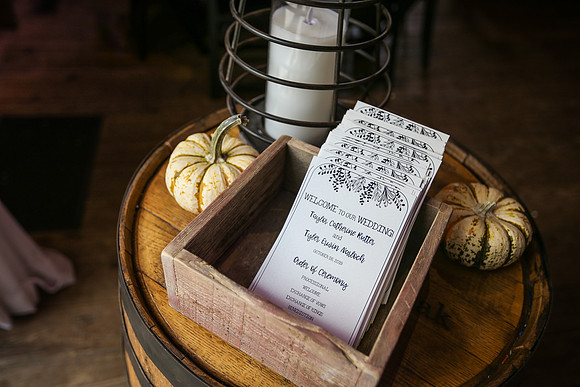 WELCOME TO OUR WEDDING!
Taylor Catherine Rutter
and
Tyler Owen
OCTOBER
Order of Ceremony
PROCESSIONAL
WELCOME
EXCHANGE OF VOWS
EXCHANGE OF RINGS